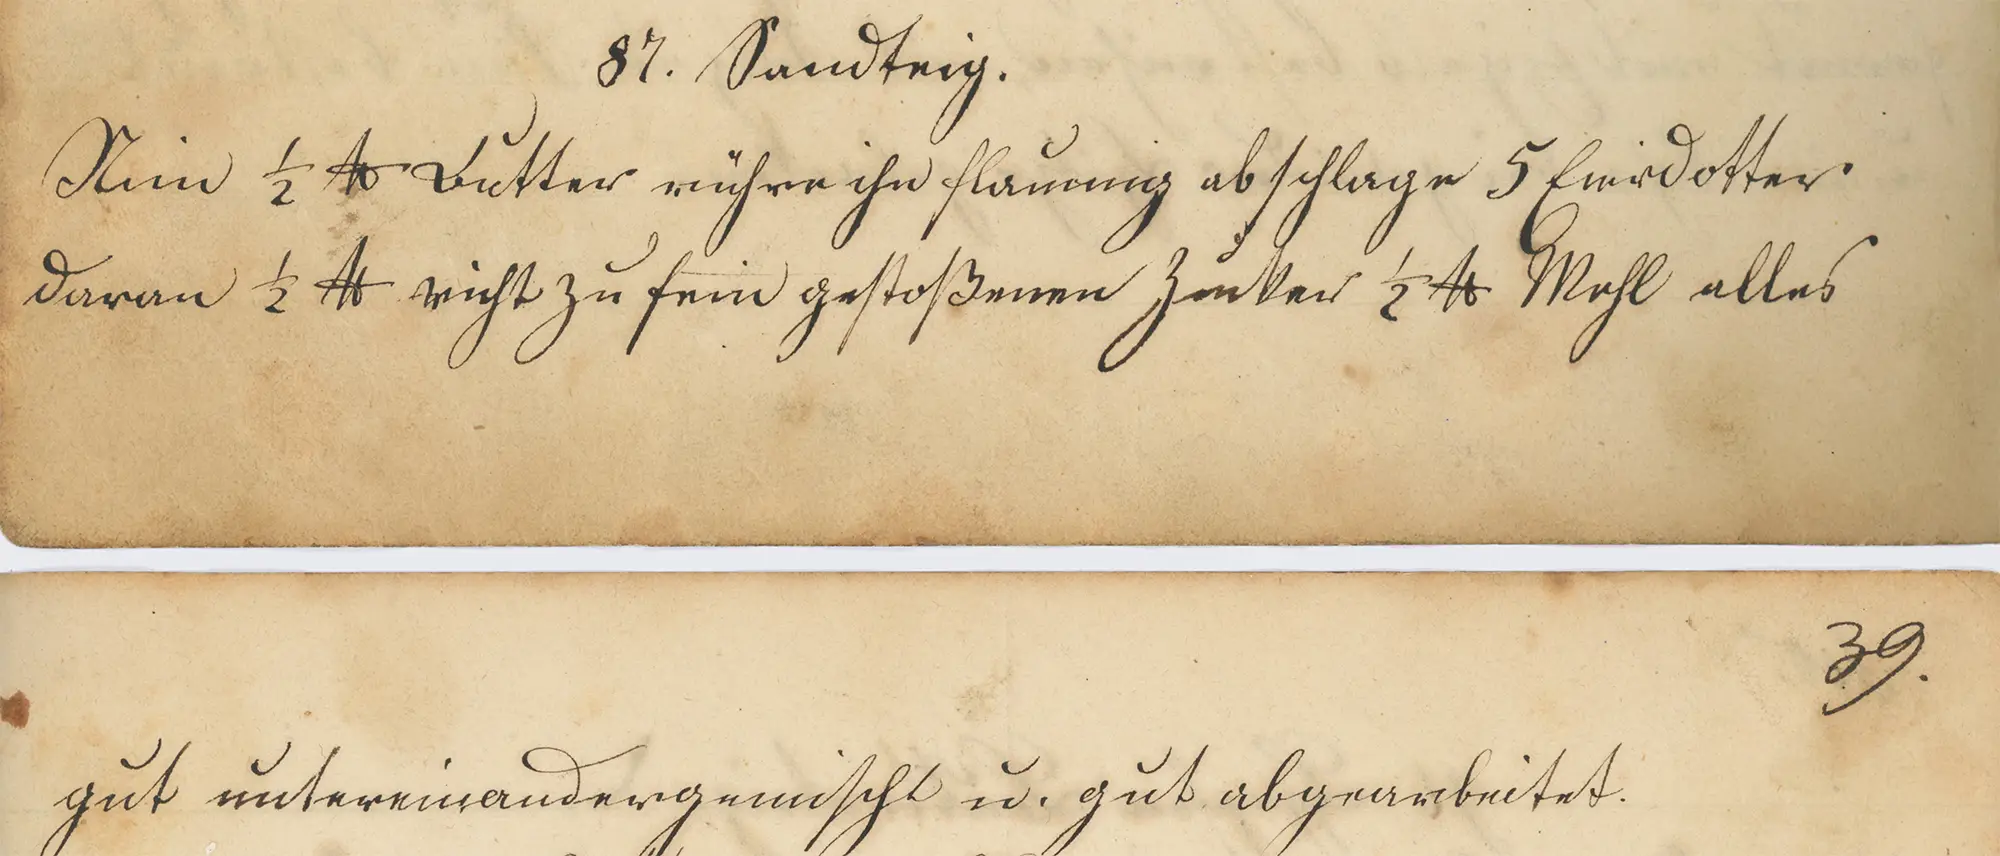 87. Sandteig.
Nim ½ ℔ Butter rühre ihn flaumig abschlage 5 Eierdotter
daran ½ ℔ nicht zu fein gestoßenen Zucker ½ ℔ Mehl alles
39.
gut untereinandergemischt u. gut abgearbeitet.